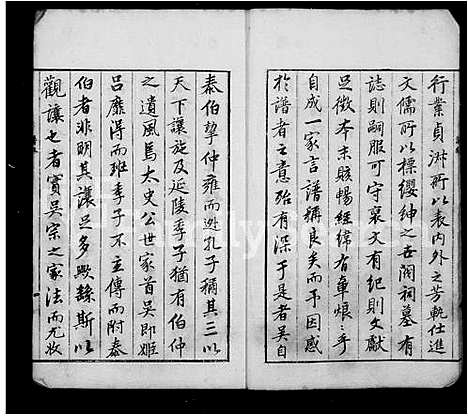 行業貞淑所以表內外之芳軌仕進
文儒所以標纓紳之世閥祠墓有
誌則嗣服可守襄文有紀則文獻
足徵本末賅暢經緯有章煨乎
自成一家言譜稱良矣而予因感
於譜者之意殆有深于是者吳自
泰伯挈仲雍而逃孔子稱其三以
天下讓施及延陵季子猶有伯仲
之遺風焉太史公世家首吳即姬
呂靡得而班季子不立傳而附泰
伯者非明其讓足多歟繇斯以
觀讓也者實吳宗之家法而尤收